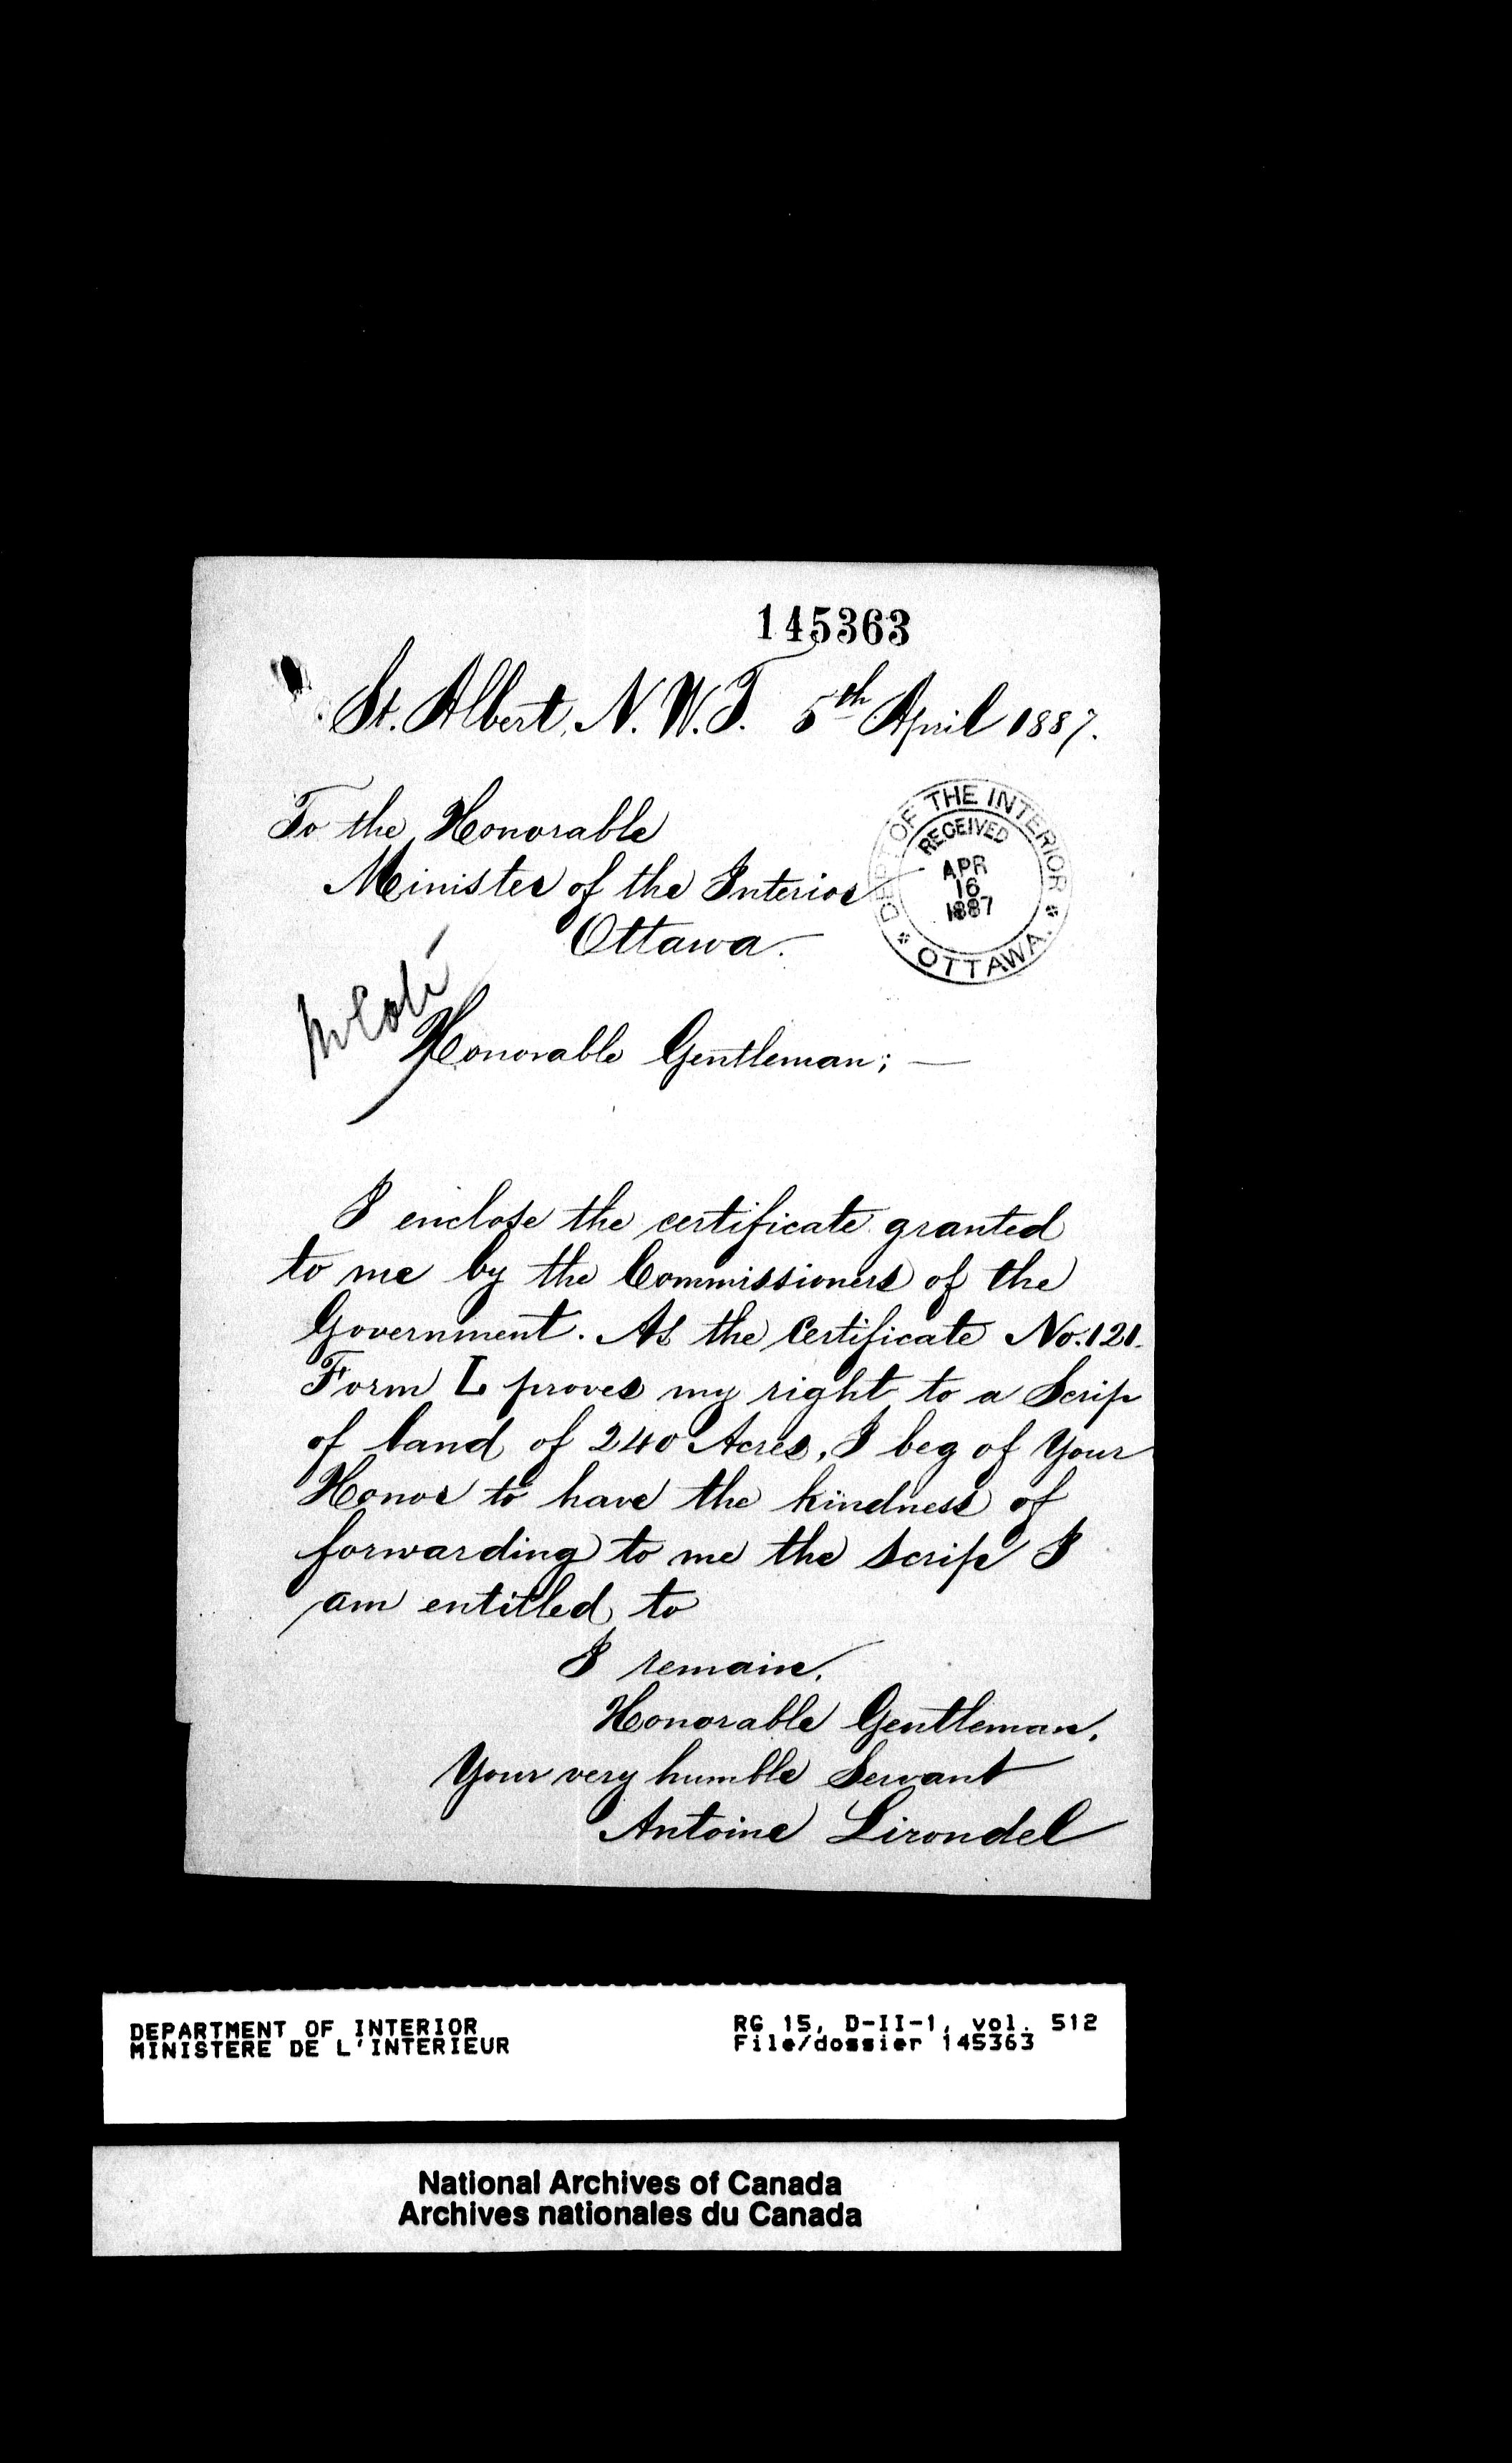 145363
St. Albert, N. W. T. 5th April 1887.
To the Honorable
Minister of the Interior
Ottawa.
DEPT OF THE INTERIOR
RECEIVED
APR
16
1887
* OTTAWA. *
Honorable Gentleman; —
I enclose the certificate granted
to me by the Commissioners of the
Government. As the Certificate No. 121.
Form L proves my right to a Scrip
of land of 240 Acres, I beg of Your
Honor to have the kindness of
forwarding to me the scrip I
am entitled to
I remain,
Honorable Gentleman,
Your very humble Servant
Antoine Lirondel
DEPARTMENT OF INTERIOR
MINISTERE DE L'INTERIEUR
RG 15, D-II-1, vol. 512
File/dossier 145363
National Archives of Canada
Archives nationales du Canada